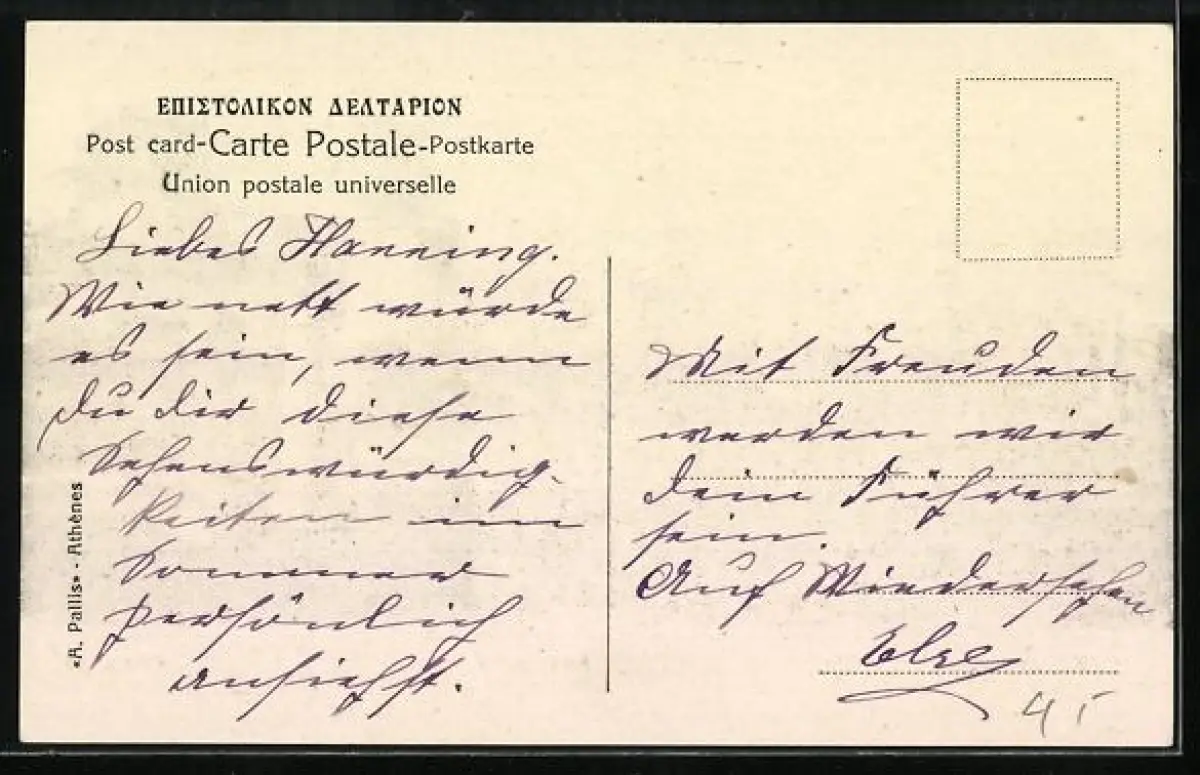 ΕΠΙΣΤΟΛΙΚΟΝ ΔΕΛΤΑΡΙΟΝ
Post card-Carte Postale-Postkarte
Union postale universelle
Liebes Hanning.
Wie nett würde
es sein, wenn
Du Dir diese
Sehenswürdig-
keiten im
Sommer
persönlich
ansiehst.
«A. Pallis» - Athènes
Mit Freuden
werden wir
Dein Führer
sein.
Auf Wiedersehen
Else
45